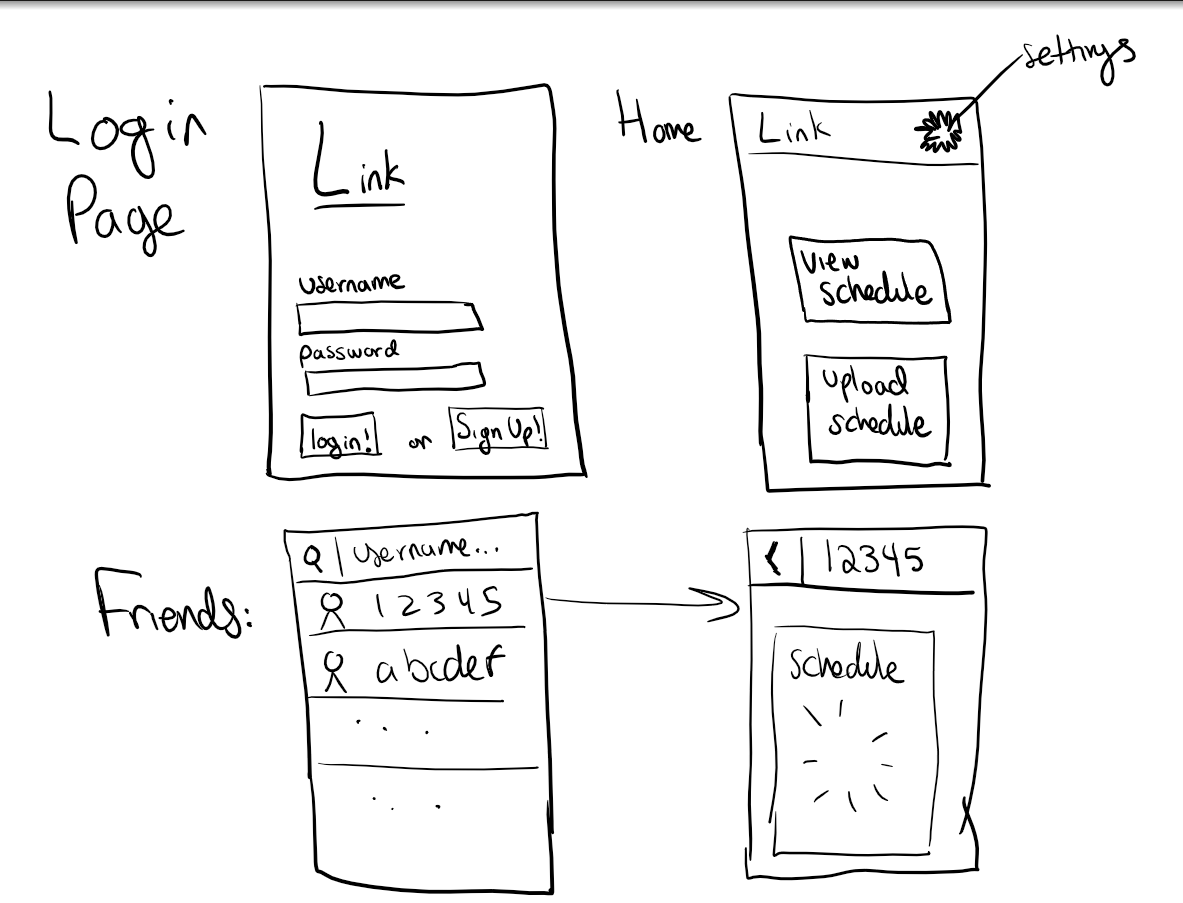 Login
Page
Link
username
password
login! or Sign Up!
Home
Link
settings
view
schedule
upload
schedule
Friends:
username...
12345
abcdef
. . .
. . .
12345
schedule